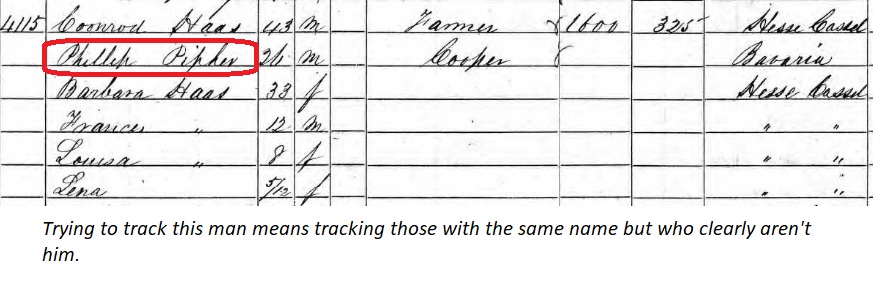 4115 Coonrod Haas 43 m Farmer 1600 325 Hesse Cassel
Phillip Pipher 26 m Cooper Bavaria
Barbara Haas 33 f Hesse Cassel
Frances " 12 m " "
Louisa " 8 f " "
Lena 5/12 f " "
Trying to track this man means tracking those with the same name but who clearly aren't
him.